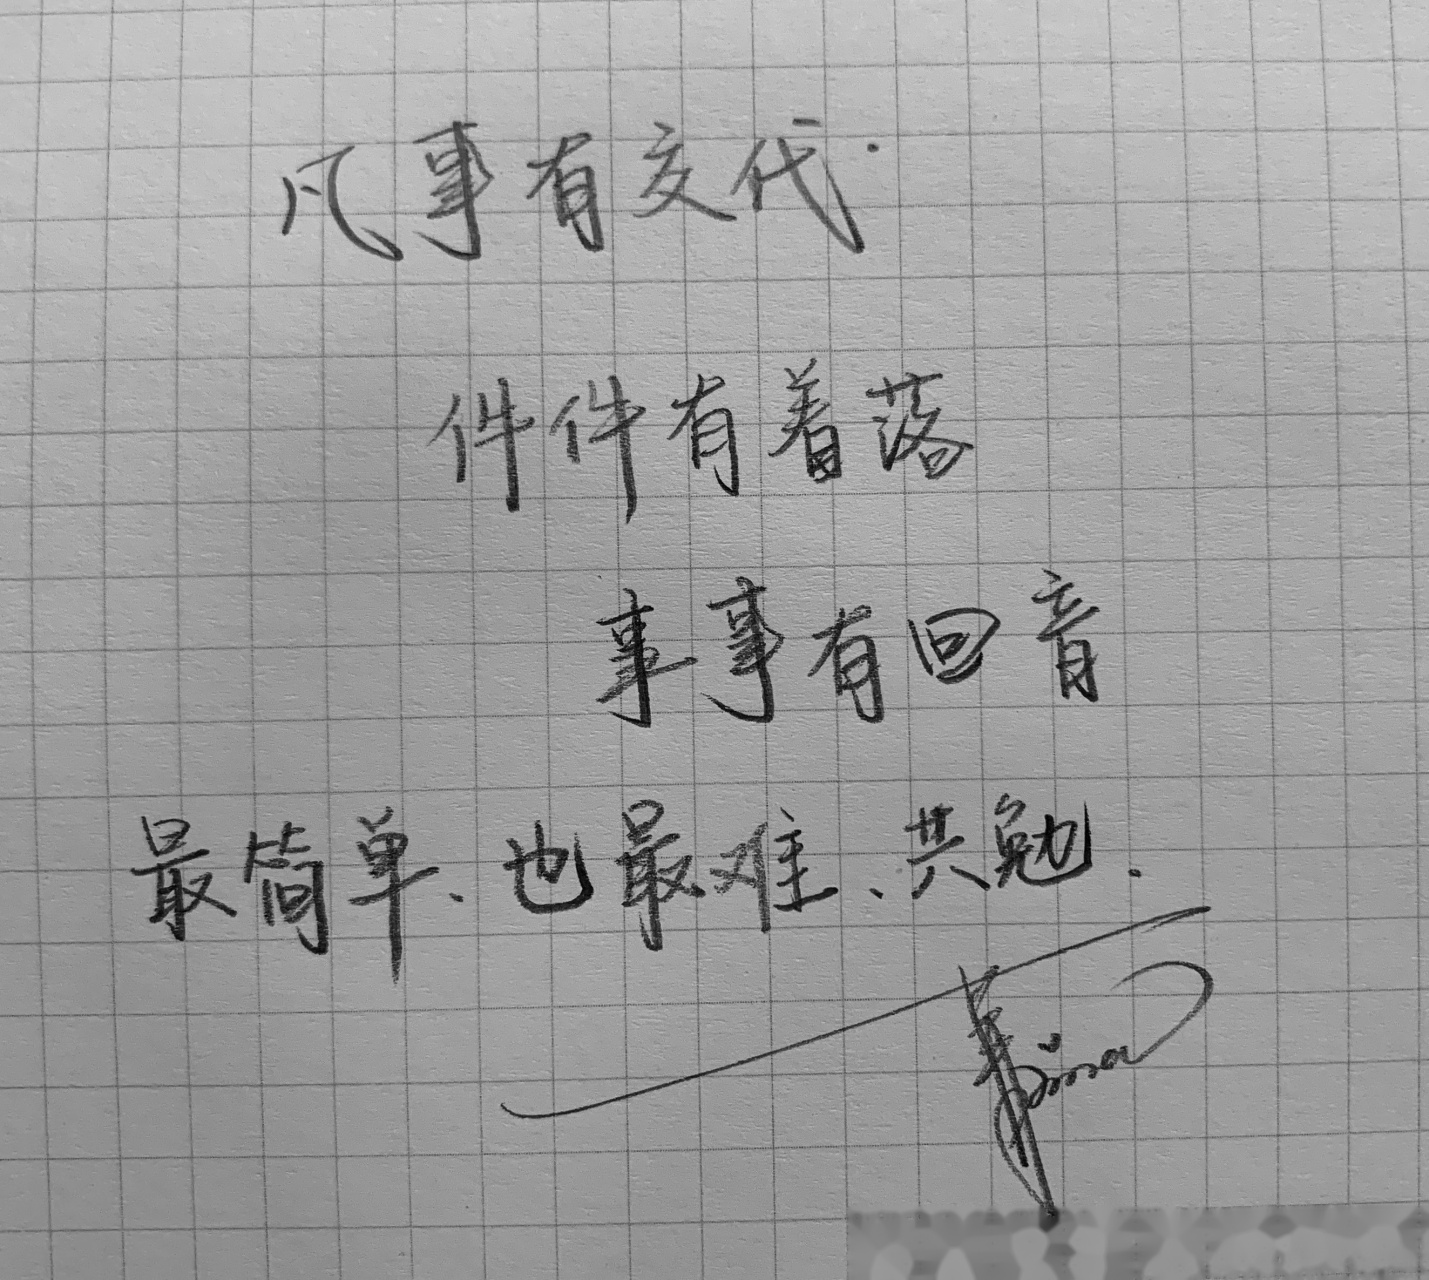 凡事有交代.
件件有着落
事事有回音
最简单、也最难、共勉.